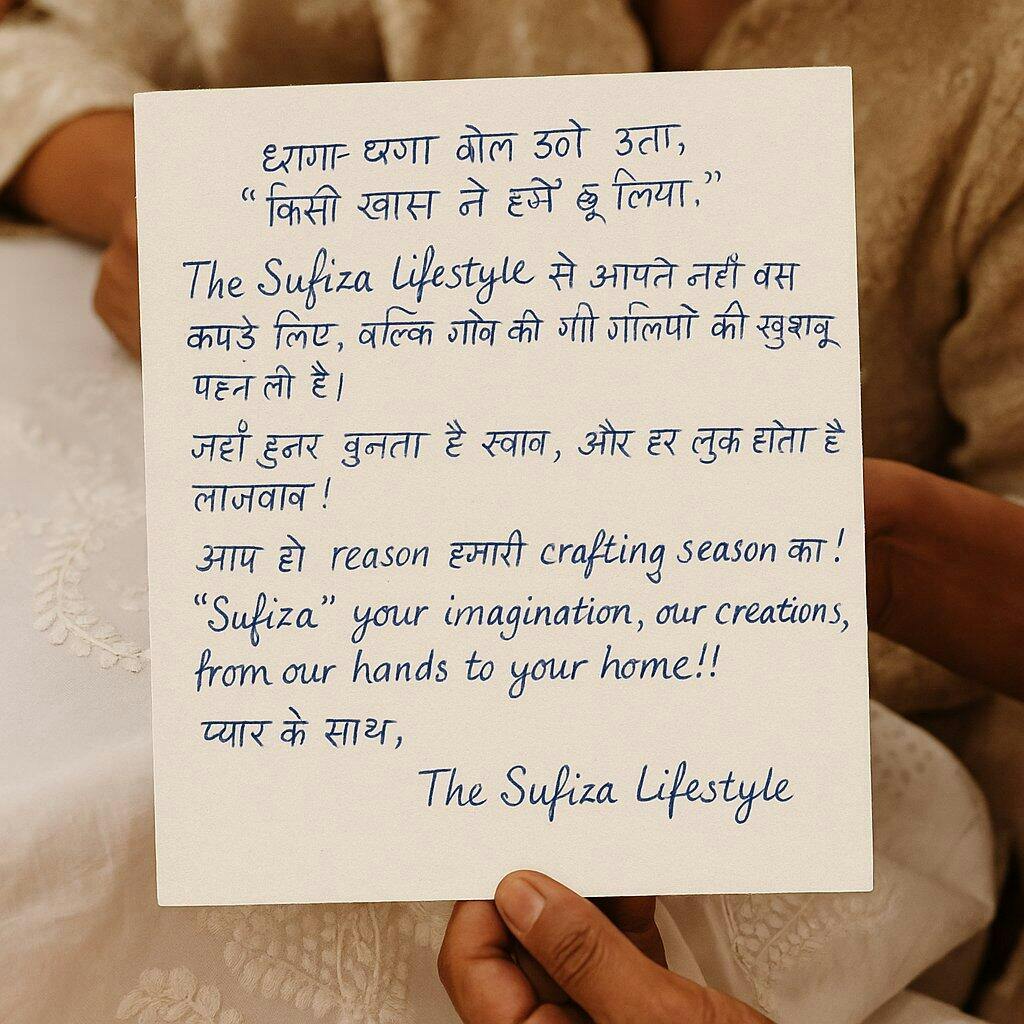 धागा-धागा बोल उठो उता,
“किसी खास ने हमें छू लिया.”
The Sufiza Lifestyle से आपते नहीं वस
कपडे लिए, वल्कि गोव की गी गलियो की खुशवू
पहन ली है।
जहाँ हुनर वुनता है स्वाव, और हर लुक होता है
लाजवाव!
आप हो reason हमारी crafting season का!
“Sufiza” your imagination, our creations,
from our hands to your home!!
प्यार के साथ,
The Sufiza Lifestyle